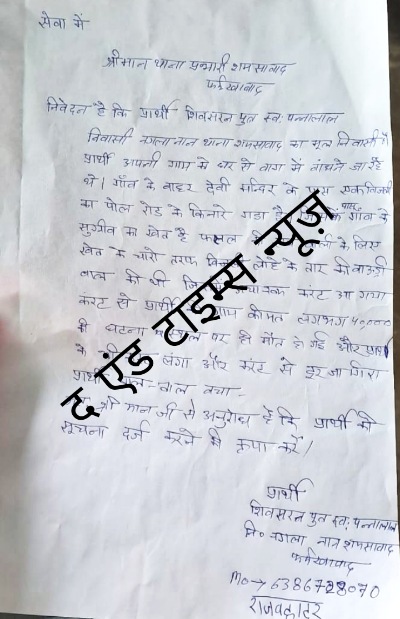 सेवा में
श्रीमान थाना प्रभारी शमसाबाद
फर्रुखाबाद
निवेदन है कि प्रार्थी शिवसरन पुत्र स्व: पन्नालाल
निवासी नगला नान थाना शमसाबाद का मूल निवासी है
प्रार्थी अपनी गाय को घर से बाग में बांधने जा रहे
थे। गाँव के बाहर देवी मन्दिर के पास एक बिजली
का पोल रोड के किनारे गडा है गाँव के
सुग्रीव का खेत है फसल के लिए
खेत के चारो तरफ लोहे के तार की
बाल की थी करंट आ गया
करंट से प्रार्थी गाय कीमत लगभग 40,000
की घटना पर ही मौत हो गई और
के लगा और करंट से दूर जा गिरा
प्रार्थी बाल-बाल बचा -
श्री मान जी से अनुरोध है कि प्रार्थी की
सूचना दर्ज करने की कृपा करें।
प्रार्थी
शिवसरन पुत्र स्व: पन्नालाल
नि० नगला नान शमसाबाद
फर्रुखाबाद
Mo → 6386728070
द एंड टाइम्स न्यूज़